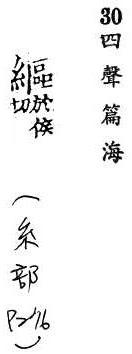 30 四聲篇海
䌔於侯切
（糸部 P276）